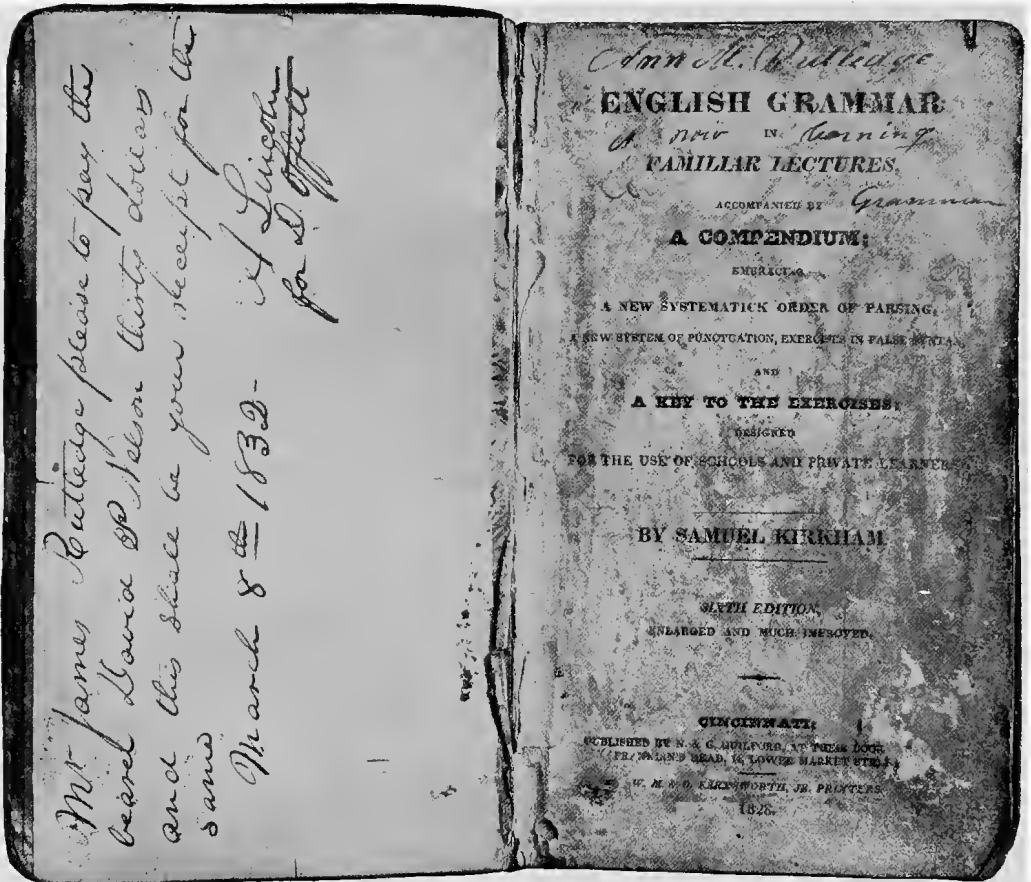 Mr James Rutledge please to pay the
bearer David P Nelson thirty dollars
and this shall be your receipt for the
same
March 8th 1832-
A Lincoln
for D Offutt
Ann M. Rutledge
ENGLISH GRAMMAR
is now IN learning
FAMILIAR LECTURES,
ACCOMPANIED BY Grammar
A COMPENDIUM;
EMBRACING
A NEW SYSTEMATICK ORDER OF PARSING,
A NEW SYSTEM OF PUNCTUATION, EXERCISES IN FALSE SYNTAX,
AND
A KEY TO THE EXERCISES:
DESIGNED
FOR THE USE OF SCHOOLS AND PRIVATE LEARNERS
BY SAMUEL KIRKHAM
SIXTH EDITION,
ENLARGED AND MUCH IMPROVED.
CINCINNATI:
PUBLISHED BY N. & G. GUILFORD, AT THEIR
FRANKLIN'S HEAD, 14, LOWER MARKET STREET
W. M. & O. FARNSWORTH, JR. PRINTERS
1828.